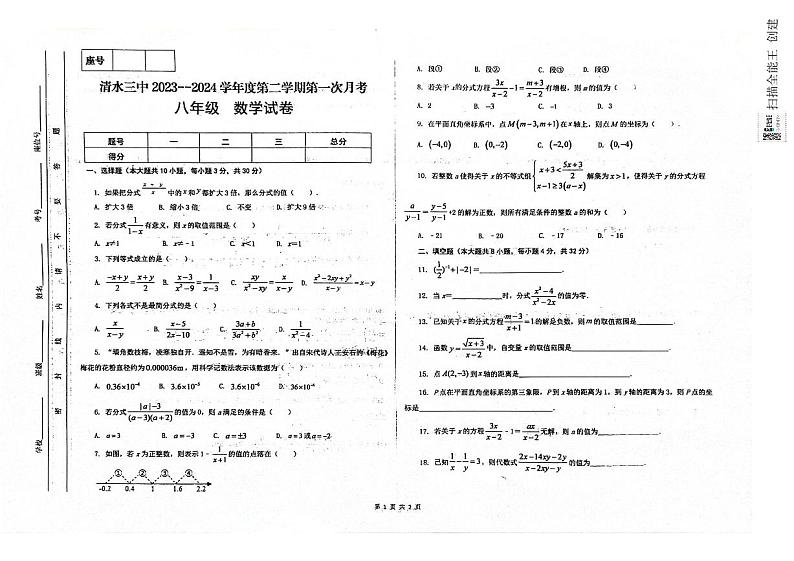 座号
清水三中 2023--2024 学年度第二学期第一次月考
八年级 数学试卷
题号 一 二 三 总分
得分
一、选择题（本大题共 10 小题，每小题 3 分，共 30 分）
1. 如果把分式 中的 x 和 y 都扩大 3 倍，那么分式的值（ ）．
A. 扩大 3 倍 B. 缩小 3 倍 C. 不变 D. 扩大 9 倍
2. 若分式 1/(1-x) 有意义，则 x 的取值范围是（ ）
A. x≠1 B. x≠－1 C. x<1 D. x＝1
3. 下列等式成立的是（ ）．
A. (-x+y)/2=(x+y)/2 B. (x-3)/(x²-9)=1/(x-3) C. xy/(x²-xy)=x/(x-y) D. (x²-2xy+y²)/(x-y)=x-y
4. 下列各式不是最简分式的是（ ）
A. x/(x-y) B. (x-5)/(2x-10) C. (3a+b)/(3a²+b²) D. 1/(x²-4)
5. “墙角数枝梅，凌寒独自开．遥知不是雪，为有暗香来．”出自宋代诗人王安石的《梅花》
梅花的花粉直径约为 0.000036m，用科学记数法表示该数据为（ ）
A. 0.36×10⁻⁴ B. 3.6×10⁻⁵ C. 3.6×10⁻⁶ D. 36×10⁻⁴
6. 若分式 (|a|-3)/((a-3)(a+2)) 的值为 0，则 a 满足的条件是（ ）
A. a=3 B. a=-3 C. a=±3 D. a=3 或 a=-2
7. 如图，若 x 为正整数，则表示 1-1/(x+1) 的值的点落在（ ）
① ② ③ ④
-0.2 0.4 1 1.6 2.2
A. 段① B. 段② C. 段③ D. 段④
8. 若关于 x 的分式方程 3x/(x-2)-1=(m+3)/(x-2) 有增根，则 m 的值为（ ）
A. 2 B. －3 C. －1 D. 3
9. 在平面直角坐标系中，点 M(m-3,m+1) 在 x 轴上，则点 M 的坐标为（ ）．
A. (-4,0) B. (0,-2) C. (-2,0) D. (0,-4)
10. 若整数 a 使得关于 x 的不等式组 { x+3<(5x+3)/2 x-1≥3(a-x) 解集为 x>1，使得关于 y 的分式方程
a/(y-1)=(y-5)/(y-1)+2 的解为正数，则所有满足条件的整数 a 的和为（ ）
A. －21 B. －20 C. －17 D. －16
二、填空题（本大题共 8 小题，每小题 4 分，共 32 分）
11. (1/2)⁻¹+|-2|=＿＿＿＿．
12. 当 x=＿＿＿＿时，分式 (x²-4)/(x²-2x) 的值为零．
13. 已知关于 x 的分式方程 (m-3)/(x+1)=1 的解是负数，则 m 的取值范围是＿＿＿＿．
14. 函数 y=√(x+3)/(x-2) 中，自变量 x 的取值范围是＿＿＿＿．
15. 点 A(2,-3) 到 x 轴的距离是＿＿＿＿．
16. P 点在平面直角坐标系的第三象限，P 到 x 轴的距离为 1，到 y 轴的距离为 3，则 P 点的坐
标是＿＿＿＿．
17. 若关于 x 的方程 3x/(x-2)-1=ax/(x-2) 无解，则 a 的值为＿＿＿＿．
18. 已知 1/x-1/y=3，则代数式 (2x-14xy-2y)/(x-2xy-y) 的值为＿＿＿＿．
第 1 页 共 2 页
学校 班级 姓名 考号 座位号
密 封 线 内 请 不 要 答 题
扫描全能王 创建